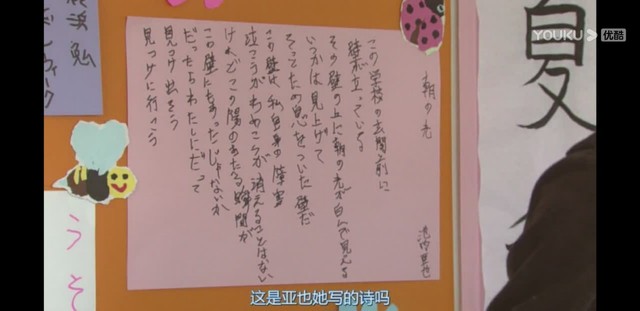 YOUKU 优酷
夏
朝の光
池内亜也
この学校の玄関前に
壁が立っている
その壁の上に朝の光が白んで見える
いつかは見上げて
そってため息をついた壁だ
この壁は私自身の障害
泣こうがわめこうが消えることはない
けれどこの陽のあたる瞬間が
この壁にもあったじゃないか
だったらわたしにだって
見つけ出そう
見つけに行こう
うそ
这是亚也她写的诗吗